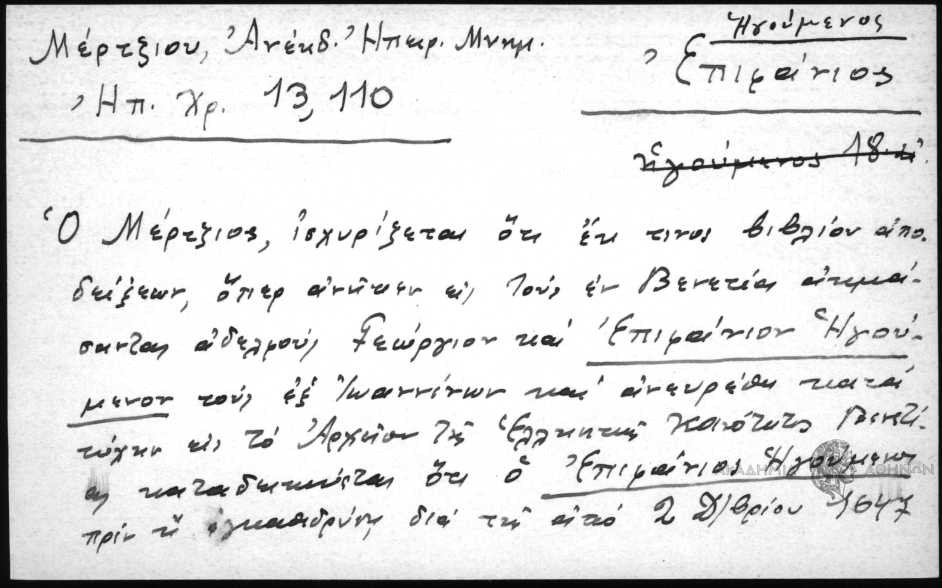 Μέρτζιου, Ἀνέκδ. Ἠπειρ. Μνημ.
Ἠπ. Χρ. 13, 110
Ἡγούμενος
Ἐπιφάνιος
ἡγούμενος 18
Ὁ Μέρτζιος, ἰσχυρίζεται ὅτι ἔκ τινος βιβλίου ἀπο-
δείξεων, ὅπερ ἀνῆκεν εἰς τούς ἐν Βενετίᾳ ἀκμά-
σαντας ἀδελφούς Γεώργιον καί Ἐπιφάνιον Ἡγού-
μενον τούς ἐξ Ἰωαννίνων καί ἀνευρέθη κατά
τύχην εἰς τό Ἀρχεῖον τῆς Ἑλληνικῆς Κοινότητος Βενετί-
ας καταδεικνύεται ὅτι ὁ Ἐπιφάνιος Ἡγούμενος
πρίν ἤ ἐγκαθιδρύσῃ διά τῆς ἀπό 2 Δ/βρίου 1647
ΑΚΑΔΗΜΙΑ ΑΘΗΝΩΝ